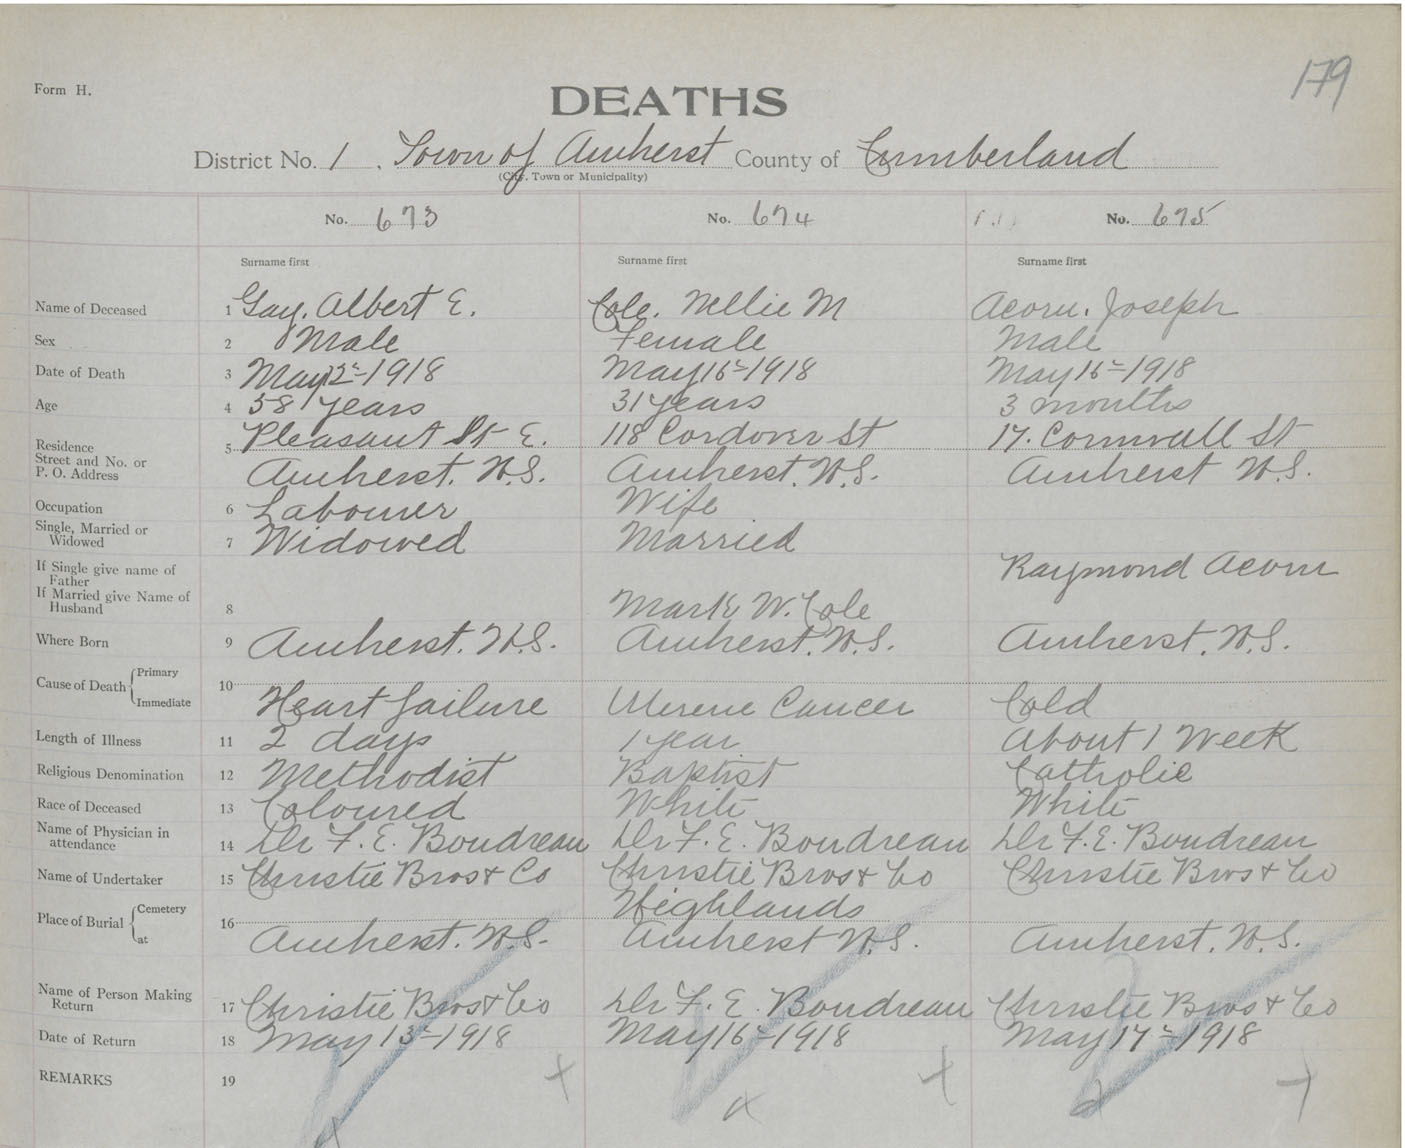 179
Form H.
DEATHS
District No. 1, Town of Amherst County of Cumberland
(City, Town or Municipality)
No. 673 No. 674 No. 675
Surname first Surname first Surname first
Name of Deceased 1 Gay, Albert E. Cole. Nellie M Acorn. Joseph
Sex 2 Male Female Male
Date of Death 3 May 12-1918 May 16-1918 May 16-1918
Age 4 58 years 31 years 3 months
Residence 5 Pleasant St E. 118 Cordover St 17. Cornwall St
Street and No. or
P. O. Address Amherst. N.S. Amherst. N.S. Amherst N.S.
Occupation 6 Labourer Wife
Single, Married or
Widowed 7 Widowed Married
If Single give name of
Father Raymond Acorn
If Married give Name of
Husband 8 Mark W. Cole
Where Born 9 Amherst. N.S. Amherst. N.S. Amherst. N.S.
Cause of Death Primary 10
Immediate Heart failure Uterene Cancer Cold
Length of Illness 11 2 days 1 year About 1 Week
Religious Denomination 12 Methodist Baptist Catholic
Race of Deceased 13 Coloured White White
Name of Physician in
attendance 14 Dr F. E. Boudreau Dr F. E. Boudreau Dr F. E. Boudreau
Name of Undertaker 15 Christie Bros & Co Christie Bros & Co Christie Bros & Co
Place of Burial Cemetery 16 Highlands
at Amherst. N.S. Amherst N.S. Amherst. N.S.
Name of Person Making
Return 17 Christie Bros & Co Dr F. E. Boudreau Christie Bros & Co
Date of Return 18 May 13-1918 May 16-1918 May 17-1918
REMARKS 19